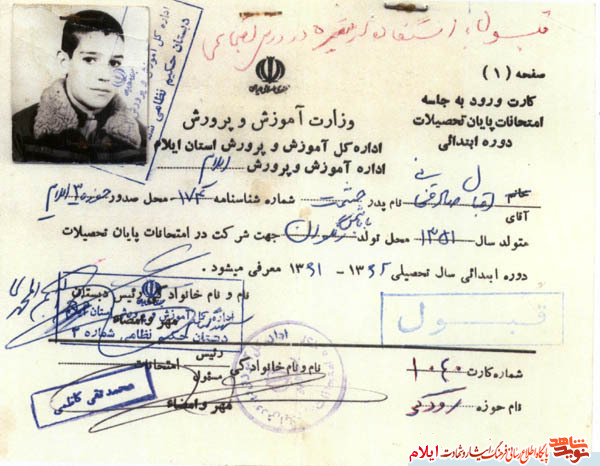 قبول با استفاده از تبصره در درس اجتماعی
صفحه (۱)
کارت ورود به جلسه
امتحانات پایان تحصیلات
دوره ابتدائی
وزارت آموزش و پرورش
اداره کل آموزش و پرورش استان ایلام
اداره آموزش و پرورش ایلام
اداره کل آموزش و پرورش
دبستان حکیم نظامی
خانم
آقای اقبال صادقی نام پدر حشمت شماره شناسنامه ۱۷۴ محل صدور حوزه ۳ ایلام
متولد سال ۱۳۵۱ محل تولد جهت شرکت در امتحانات پایان تحصیلات
دوره ابتدائی سال تحصیلی ۱۳۶۲ - ۱۳۶۱ معرفی میشود .
نام و نام خانوادگی رئیس دبستان
مهر و امضاء
اداره کل آموزش و پرورش استان ایلام
دبستان حکیم نظامی شماره ۲
قبول
شماره کارت ۱۰۴۰
نام حوزه رودکی
نام و نام خانوادگی رئیس مسئول امتحانات
مهر و امضاء
محمد تقی کاظمی
نوید شاهد
پایگاه اطلاع رسانی فرهنگ ایثار و شهادت ایلام